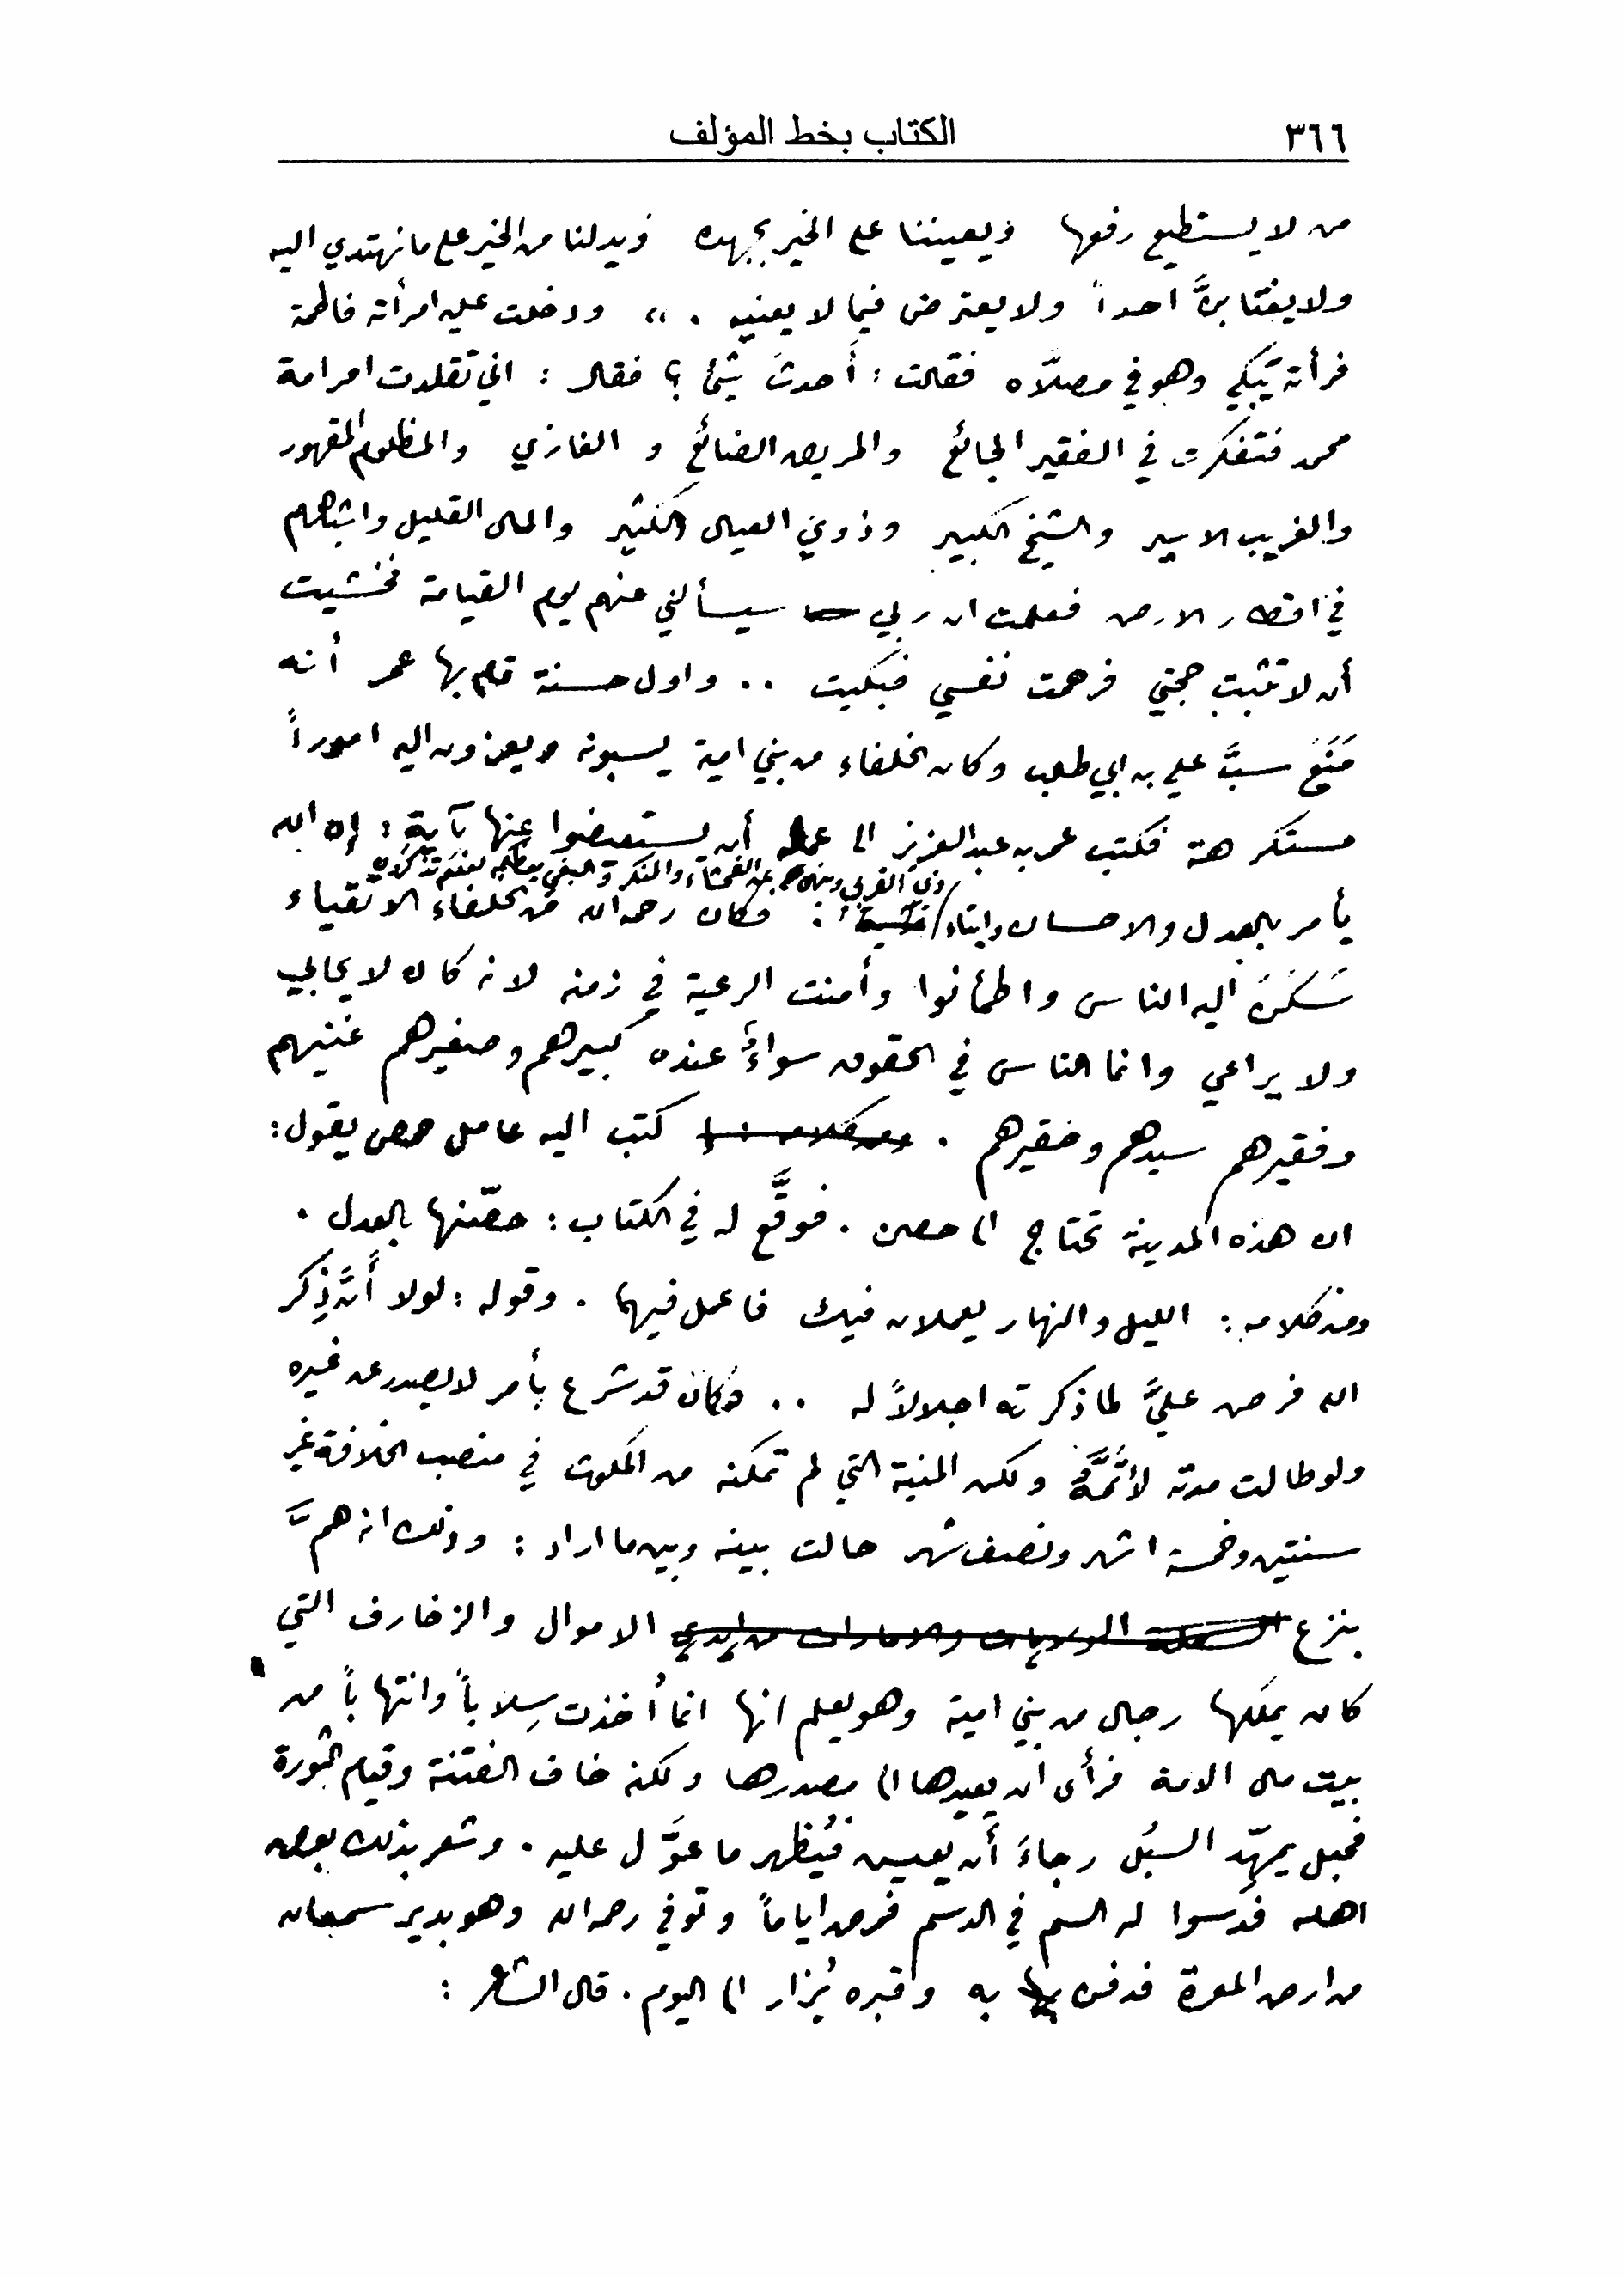 ٣٦٦ الكتاب بخط المؤلف
من لا يستطيع رفعها ويعيننا على الخير بجهده ويدلنا من الخير على ما نهتدي اليه
ولا يغتابنَّ احداً ولا يعترض فيما لا يعنيه . » ودخلت عليه امرأته فاطمة
فرأته يبكي وهو في مصلّاه فقالت : أحدثَ شيءٌ ؟ فقال : اني تقلدت امر امة
محمد فتفكرت في الفقير الجائع والمريض الضائع و الغازي والمظلوم المقهور
والغريب الاسير والشيخ الكبير وذوي العيال الكثير والمال القليل واشباههم
في اقطار الارض فعلمت ان ربي سيسألني عنهم يوم القيامة فخشيت
أن لا تثبت حجتي فرحمت نفسي فبكيت .. واول حسنة قام بها عمر أنه
مَنَعَ سبَّ علي بن ابي طالب وكان الخلفاء من بني امية يسبونه ويعزون اليه اموراً
مستكرهة فكتب عمر بن عبد العزيز الى عماله أن يستعيضوا عنها بآية : إن الله
ذي القربى وينهى عن الفحشاء والمنكر والبغي يعظكم لعلكم تذكرون
يأمر بالعدل والاحسان وإيتاء : فكان رحمه الله من الخلفاء الاتقياء
سَكَنَ اليه الناس واطمأنوا وأمنت الرعية في زمنه لانه كان لا يحابي
ولا يراعي وانما الناس في الحقوق سواءٌ عنده كبيرهم وصغيرهم غنيهم
وفقيرهم سيدهم وحقيرهم . ومن كلامه : كتب اليه عامل حمص يقول :
ان هذه المدينة تحتاج الى حصن . فوقَّع له في الكتاب : حصّنها بالعدل .
ومن كلامه : الليل والنهار يعملان فيك فاعمل فيهما . وقوله : لولا أنَّ ذِكر
الله فرض عليَّ لما ذكرته اجلالاً له .. وكان قد شرع بأمر لا يصدر عن غيره
ولو طالت مدته لأتمَّهُ ولكن المنية التي لم تمكنه من المكوث في منصب الخلافة غير
سنتين وخمسة اشهر ونصف شهر حالت بينه وبين ما اراد : وذلك انه همَّ
بنزع السلطة الولايات والامارات من ايدي الاموال والزخارف التي
كان يملكها رجال من بني امية وهو يعلم انها انما أُخذت سِلاباً وانتهاباً من
بيت مال الامة فرأى ان يعيدها الى مصدرها ولكنه خاف الفتنة وقيام الثورة
فجعل يمهّد السبُل رجاءَ أن يعيش فيُظهر ما عوَّل عليه . وشعر بذلك بعض
اهله فدسوا له السم في الدسم فمرض اياماً وتوفي رحمه الله وهو بدير سمعان
من ارض المعرة فدفن به وقبره يُزار الى اليوم . قال الشاعر :